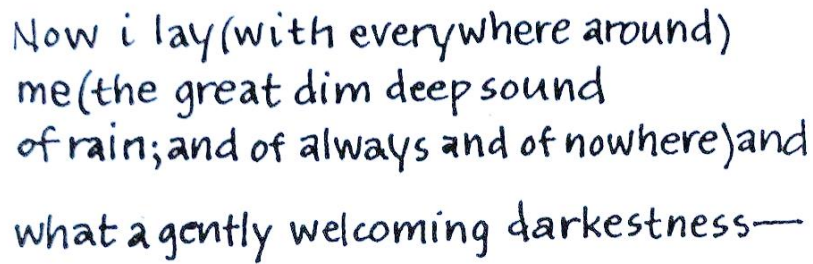 Now i lay(with everywhere around)
me(the great dim deep sound
of rain;and of always and of nowhere)and
what a gently welcoming darkestness—